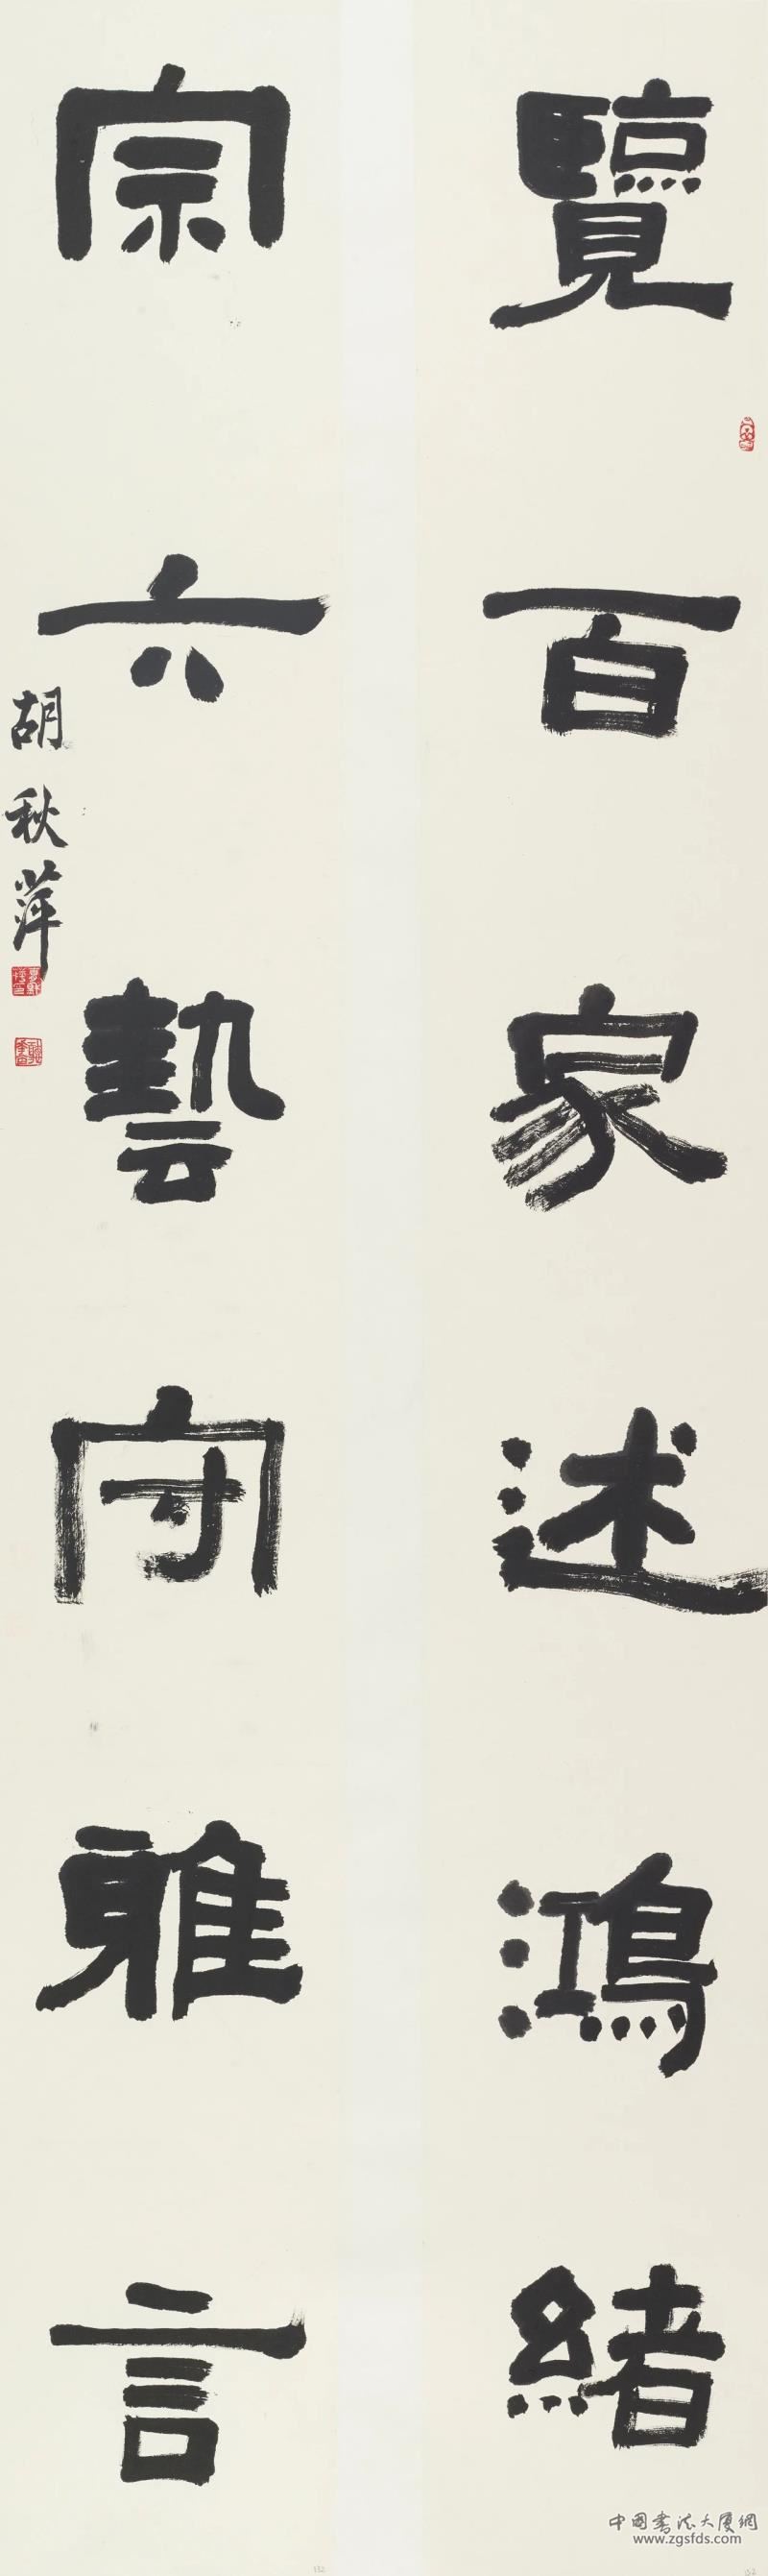 覽百家述鴻緒
宗六藝守雅言
胡秋萍
中国书法大厦網
www.zgsfds.com